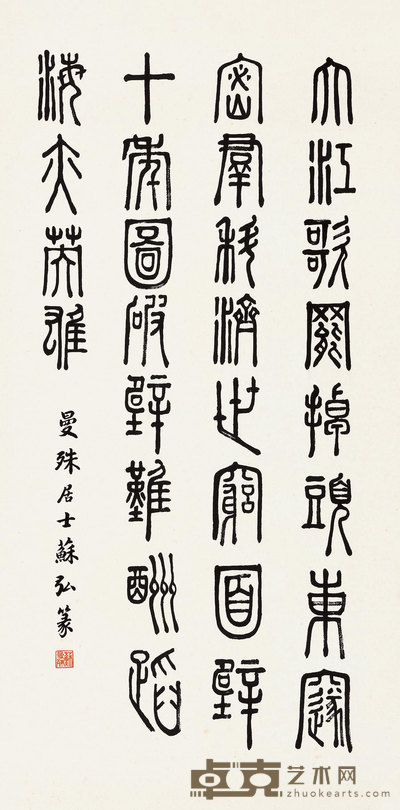 大江歌罷掉頭東邃
密羣科濟世窮面壁
十年圖破壁難酬蹈
海亦英雄
曼殊居士蘇弘篆
卓克艺术网
zhuokearts.com